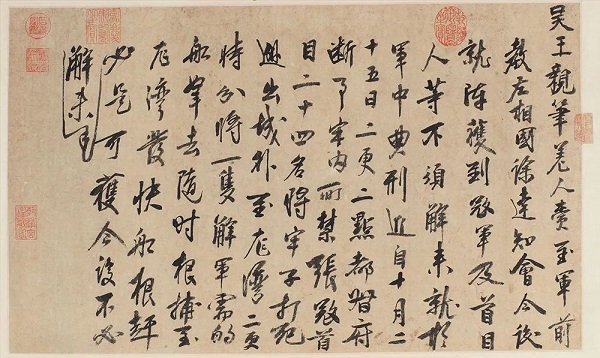 吳王親筆差人賫至軍前
教左相國徐達知會今後
就陣獲到寇軍及首目
人等不須解來就於
軍中典刑近自十月二
十五日二更二點都督府
斷了牢內所禁張寇首
目二十四名將牢子打死
越出城外至龍灣二更
時分將一隻解軍需的
船拿去隨時根捕至
龍灣發快船根趕
必是可獲今後不必
解來